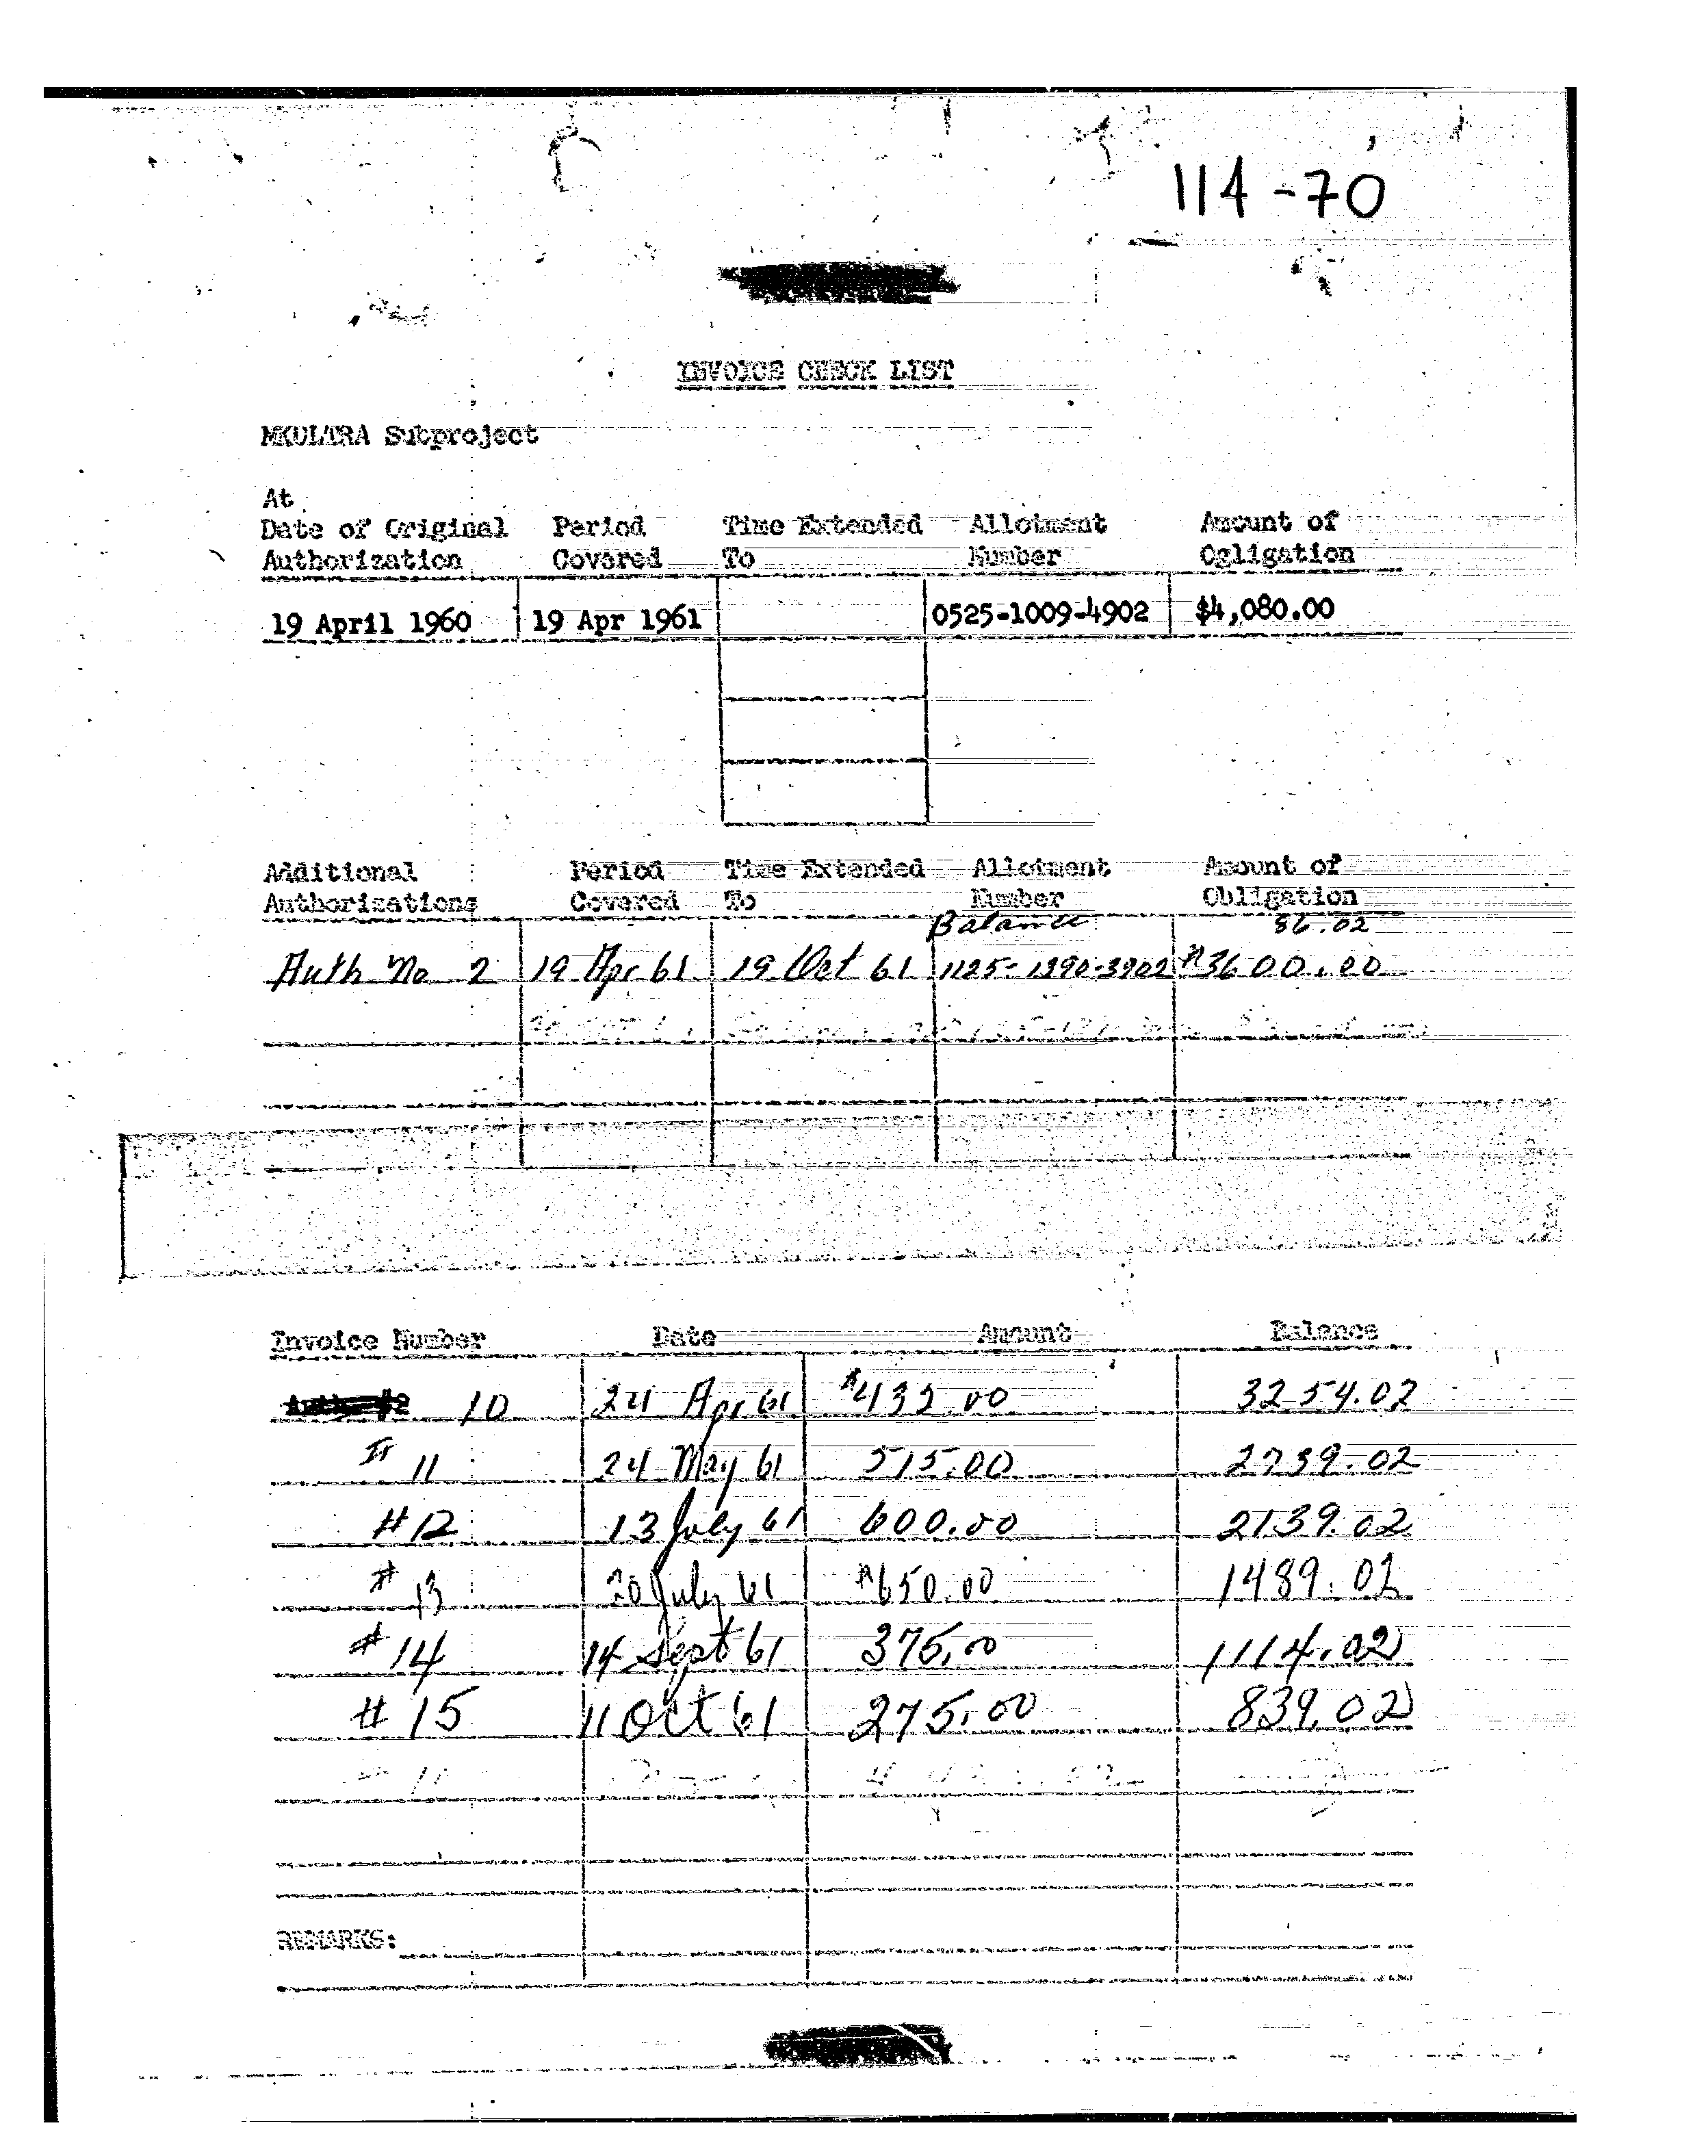 114-70
INVOICE CHECK LIST
MKULTRA Subproject
At
Date of Original Period Time Extended Allotment Amount of
Authorization Covered To Number Ogligation
19 April 1960 19 Apr 1961 0525-1009-4902 $4,080.00
Additional Period Time Extended Allotment Amount of
Authorizations Covered To Number Obligation
Balance 86.02
Auth No 2 19 Apr 61 19 Oct 61 1125-1390-3902 $3600.00
Invoice Number Date Amount Balance
10 24 Apr 61 $432.00 3254.02
# 11 24 May 61 515.00 2739.02
#12 13 July 61 600.00 2139.02
# 13 20 July 61 $650.00 1489.02
# 14 14 Sept 61 375.00 1114.02
# 15 11 Oct 61 275.00 839.02
REMARKS: